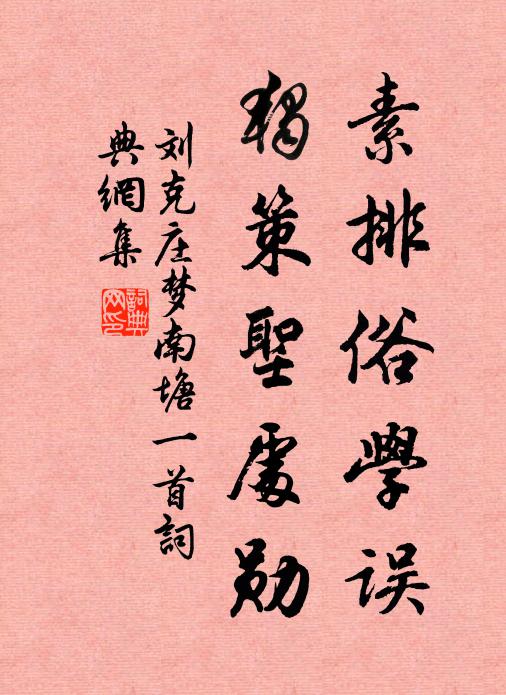 素排俗學误
獨策聖處勋
刘克庄梦南塘一首詞
典網集
詞典网印